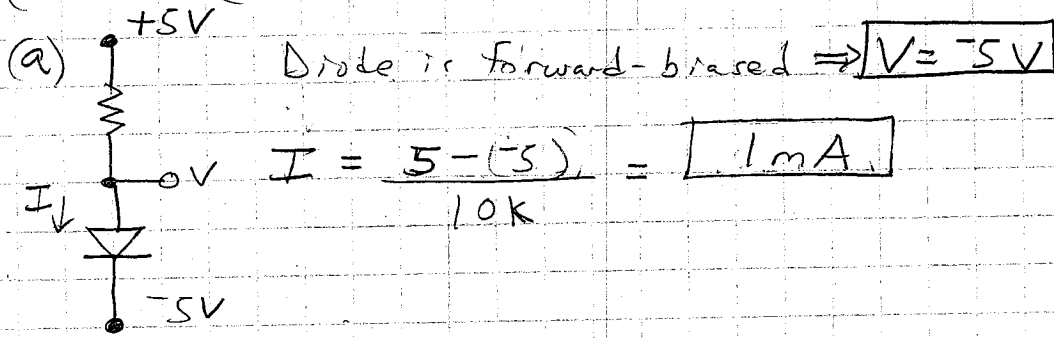 +5V
(a) Diode is forward-biased ⇒ V = ⁻5V
I = 5-(⁻5) / 10K = 1mA
V
I↓
⁻5V